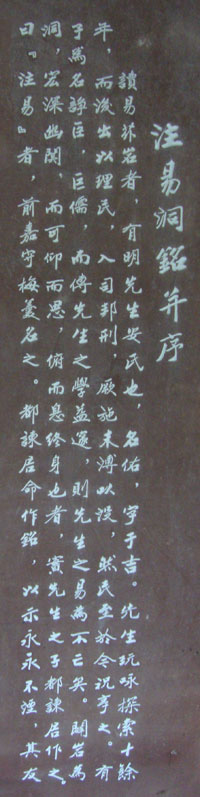 注易洞銘并序
讀易拜岩者，有明先生安氏也，名佑，字于吉。先生玩咏探索十餘
年，而後出以理民，入司邦刑，厥施未溥以没，然民至於今祝亨之。有
子爲名諍臣，巨儒，而傳先生之學益遠，則先生之易爲不亡矣。闢岩爲
洞，宏深幽閴，而可仰而思，俯而息終身也者，實先生之子都諫居作之。
曰『注易』者，前嘉守梅姜名之。都諫居命作銘，以示永永不湮，其友